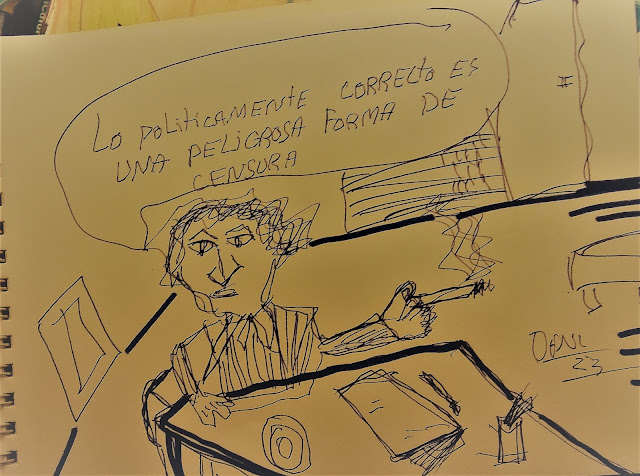 LO POLITICAMENTE CORRECTO ES
UNA PELIGROSA FORMA DE
CENSURA
23